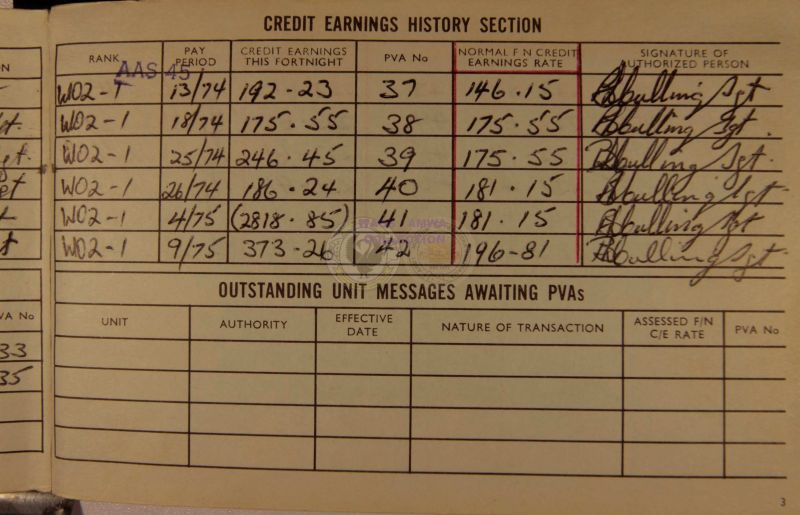 CREDIT EARNINGS HISTORY SECTION
RANK PAY PERIOD CREDIT EARNINGS THIS FORTNIGHT PVA No NORMAL F N CREDIT EARNINGS RATE SIGNATURE OF AUTHORIZED PERSON
AAS 45
WO2-1 13/74 192-23 37 146.15 Sgt
WO2-1 18/74 175.55 38 175.55 Sgt.
WO2-1 25/74 246.45 39 175.55 Sgt.
WO2-1 26/74 186.24 40 181.15 Sgt
WO2-1 4/75 (2818.85) 41 181.15 Sgt
WO2-1 9/75 373-26 42 196-81 Sgt.
OUTSTANDING UNIT MESSAGES AWAITING PVAs
VA No UNIT AUTHORITY EFFECTIVE DATE NATURE OF TRANSACTION ASSESSED F/N C/E RATE PVA No
33
35
3